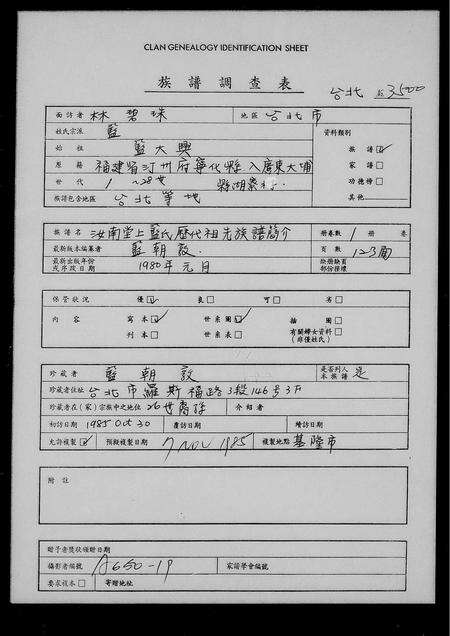 CLAN GENEALOGY IDENTIFICATION SHEET
族譜調查表 台北 3500
面訪者 林碧珠 地區 台北市
姓氏宗派 藍 資料類別
始祖 藍大興 族譜☑
原籍 福建省汀州府寧化縣入廣東大埔 家譜□
世代 1~28世 縣湖寮 功德榜□
族譜包含地區 台北等地 其他
族譜名 汝南堂上藍氏歷代祖先族譜簡介 冊卷數 1 冊卷
最新版本編纂者 藍朝 頁數 123面
最新出版年份或序改日期 1980年元月 缺冊缺頁部份採樣
保管狀況 優☑ 良□ 可□ 劣□
內容 寫本☑ 世系圖☑ 插圖□
刊本□ 世系表□ 有關婦女資料□ (非僅姓氏)
珍藏者 藍朝 是否列入本族譜 是
珍藏者住址 台北市羅斯福路3段146号3F
珍藏者在(家)宗族中之地位 26世裔孫 介紹者
初訪日期 1985 Oct 30 覆訪日期 續訪日期
允許複製☑ 預擬複製日期 7 NOV 1985 複製地點 基隆市
附註
贈予者獎狀頒贈日期
攝影者編號 A650-19 家譜學會編號
要求複本□ 寄贈地址